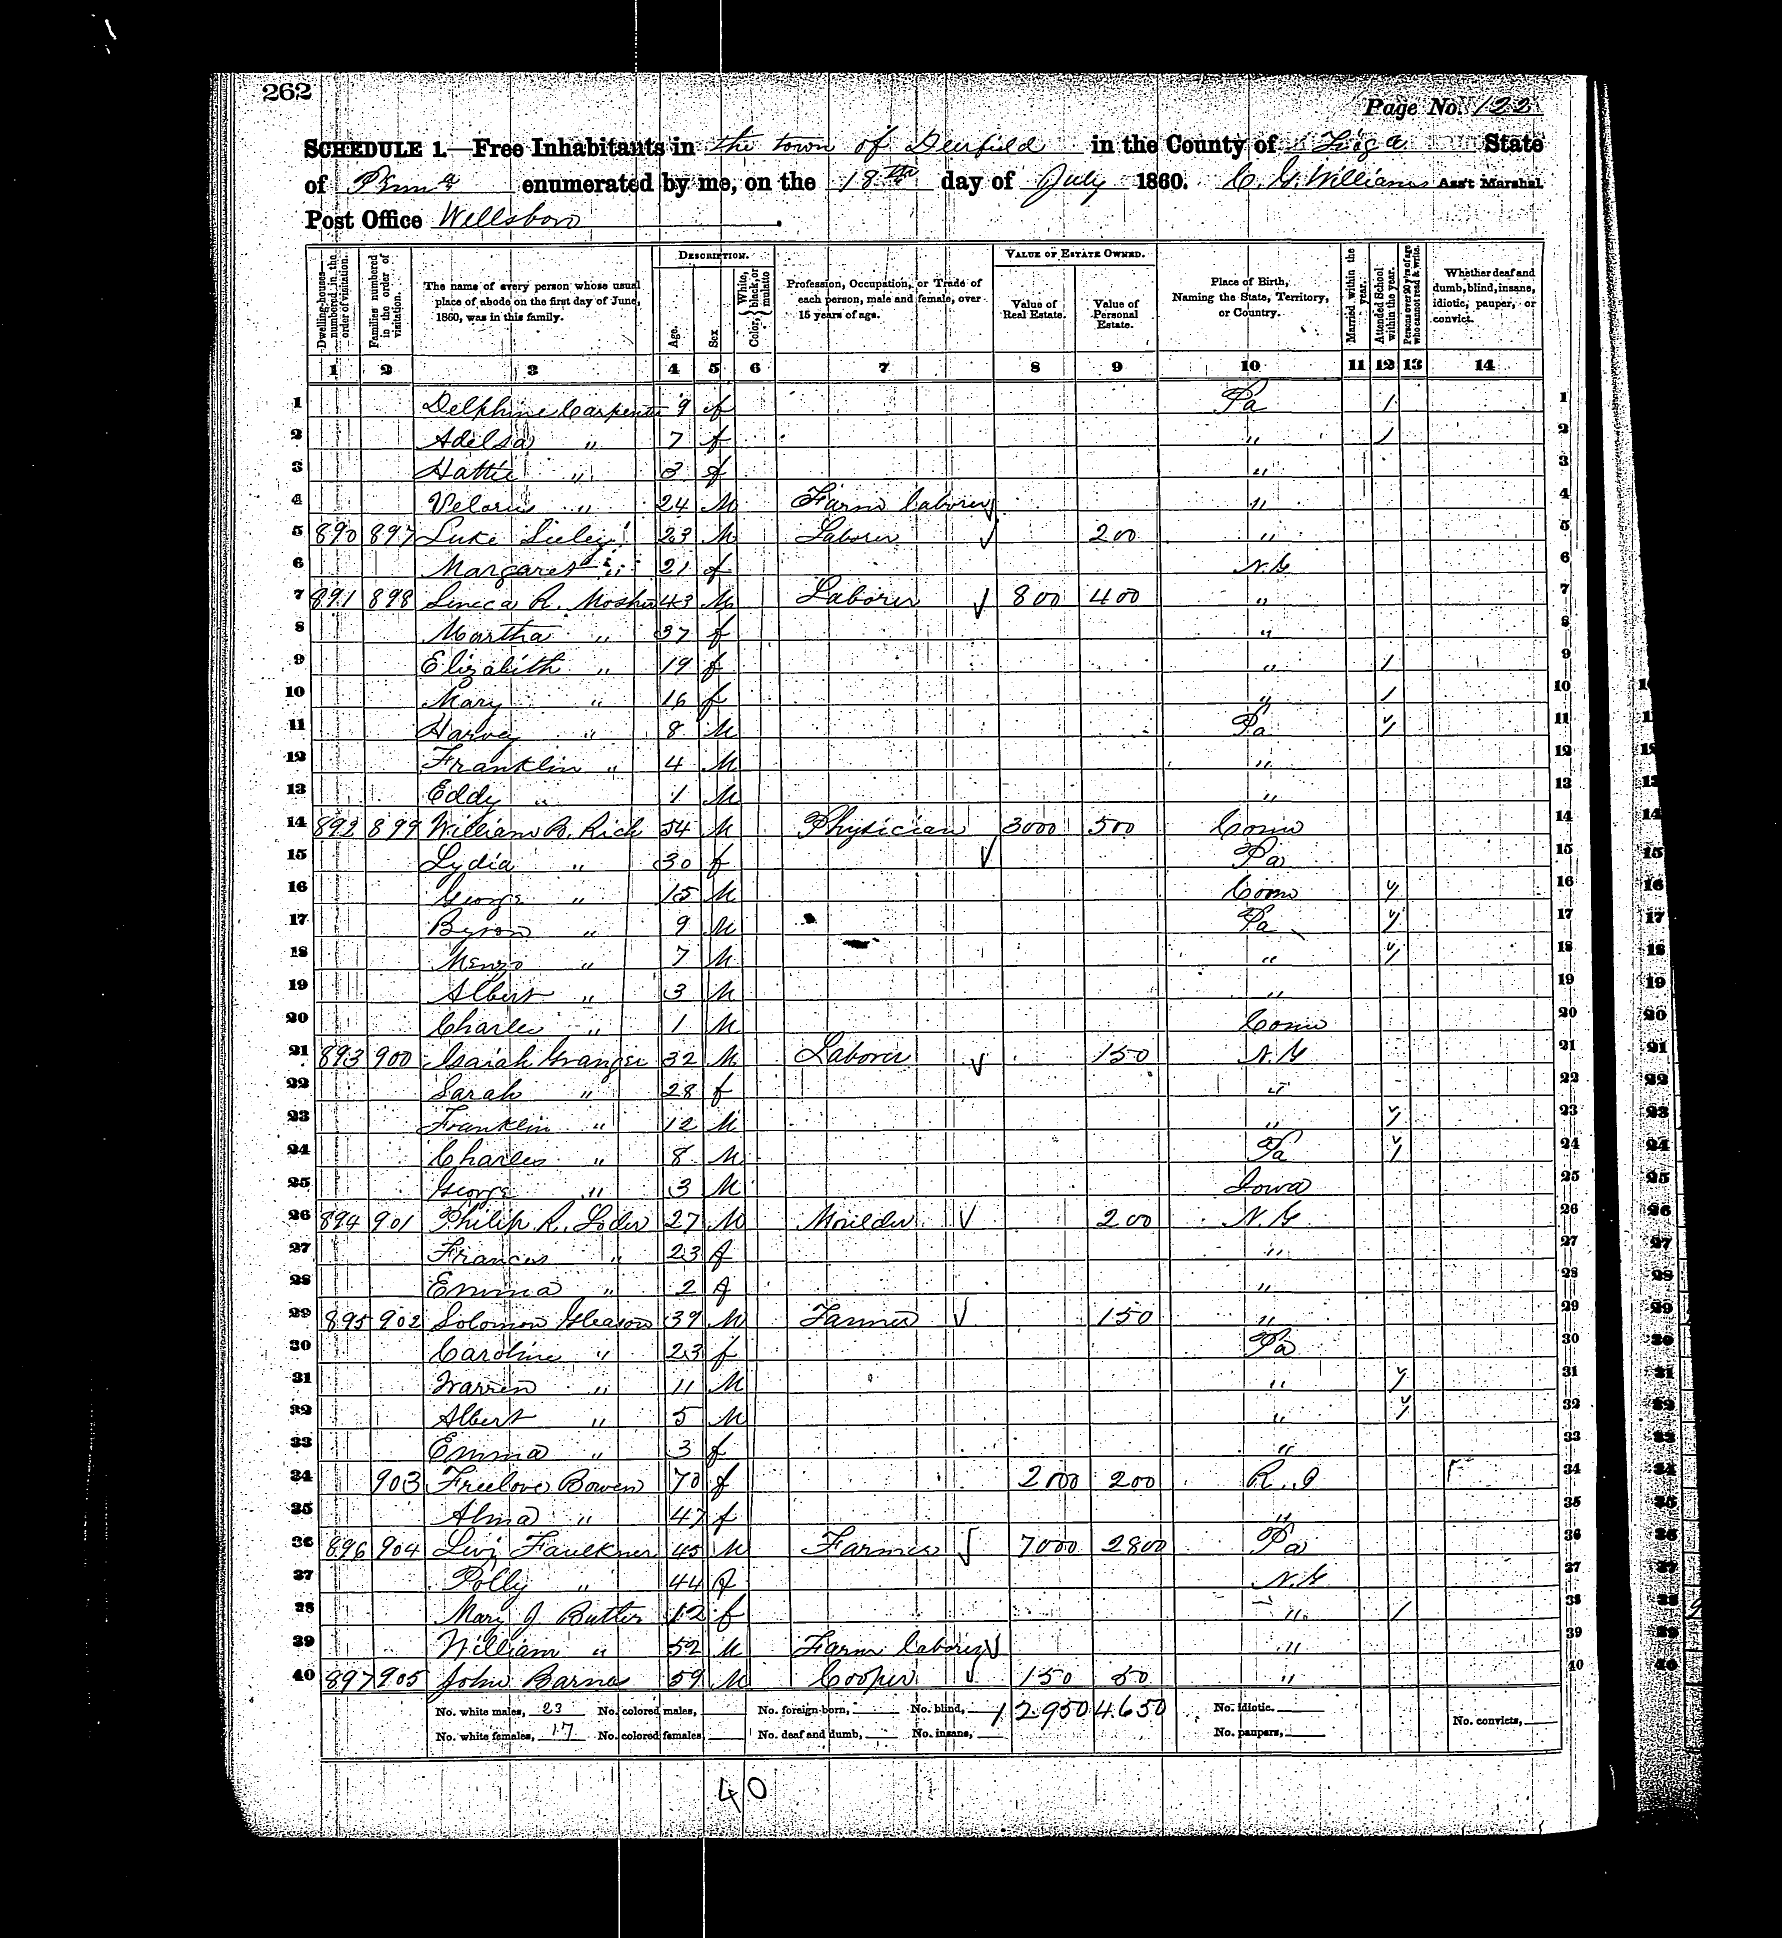 262
Page No. 122
SCHEDULE 1.—Free Inhabitants in the town of Deerfield in the County of Tioga State
of Penna enumerated by me, on the 18th day of July 1860. C. G. Williams Ass't Marshal.
Post Office Wellsboro.
Dwelling-houses—numbered in the order of visitation.
Families numbered in the order of visitation.
The name of every person whose usual place of abode on the first day of June, 1860, was in this family.
DESCRIPTION.
Age.
Sex
Color, { White, black, or mulatto
Profession, Occupation, or Trade of each person, male and female, over 15 years of age.
VALUE OF ESTATE OWNED.
Value of Real Estate.
Value of Personal Estate.
Place of Birth, Naming the State, Territory, or Country.
Married within the year.
Attended School within the year.
Persons over 20 y'rs of age who cannot read & write.
Whether deaf and dumb, blind, insane, idiotic, pauper, or convict.
1 2 3 4 5 6 7 8 9 10 11 12 13 14
1 Delphine Carpenter 9 f Pa / 1
2 Adelsa " 7 f " / 2
3 Hattie " 3 f " 3
4 " 24 M Farm laborer " 4
5 890 897 Luke 23 M Laborer 200 " 5
6 Margaret " 21 f N.Y 6
7 891 898 Seneca R. Mosher 43 M Laborer 800 400 " 7
8 Martha " 37 f " 8
9 Elizabeth " 19 f " / 9
10 Mary " 16 f " / 10
11 Harvey " 8 M Pa / 11
12 Franklin " 4 M " 12
13 Eddy " 1 M " 13
14 892 899 William B. Rich 54 M Physician 3000 500 Conn 14
15 Lydia " 30 f Pa 15
16 George " 15 M Conn / 16
17 Byron " 9 M Pa / 17
18 Menzo " 7 M " / 18
19 Albert " 3 M " 19
20 Charles " 1 M Conn 20
21 893 900 Isaiah Granger 32 M Laborer 150 N.Y 21
22 Sarah " 28 f " 22
23 Franklin " 12 M " / 23
24 Charles " 8 M Pa / 24
25 George " 3 M Iowa 25
26 894 901 Philip R. Loder 27 M Moulder 200 N.Y 26
27 Frances " 23 f " 27
28 Emma " 2 f " 28
29 895 902 Solomon Gleason 39 M Farmer 150 " 29
30 Caroline " 23 f Pa 30
31 Warren " 11 M " / 31
32 Albert " 5 M " / 32
33 Emma " 3 f " 33
34 903 Freelove Bowen 70 f 2000 200 R.I 34
35 Alma " 47 f " 35
36 896 904 Levi Faulkner 45 M Farmer 7000 2800 Pa 36
37 Polly " 44 f N.Y 37
38 Mary J Butler 12 f " / 38
39 William " 52 M Farm laborer " 39
40 897 905 John Barnes 59 M Cooper 150 50 " 40
No. white males, 23 No. colored males, No. foreign born, No. blind, 12950 4650 No. idiotic.
No. white females, 17 No. colored females, No. deaf and dumb, No. insane, No. paupers, No. convicts,
40